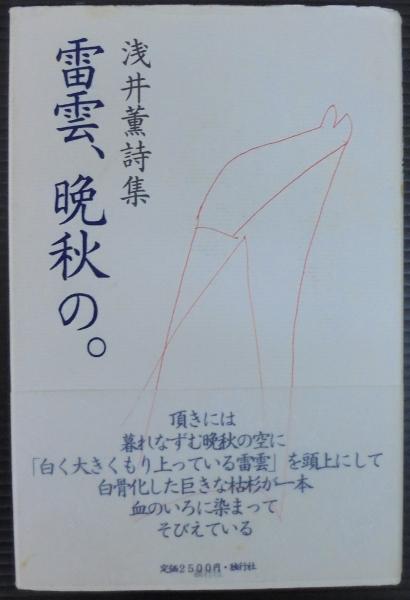 浅井薫詩集
雷雲、晩秋の。
頂きには
暮れなずむ晩秋の空に
「白く大きくもり上っている雷雲」を頭上にして
白骨化した巨きな枯杉が一本
血のいろに染まって
そびえている
定価2500円・独行社